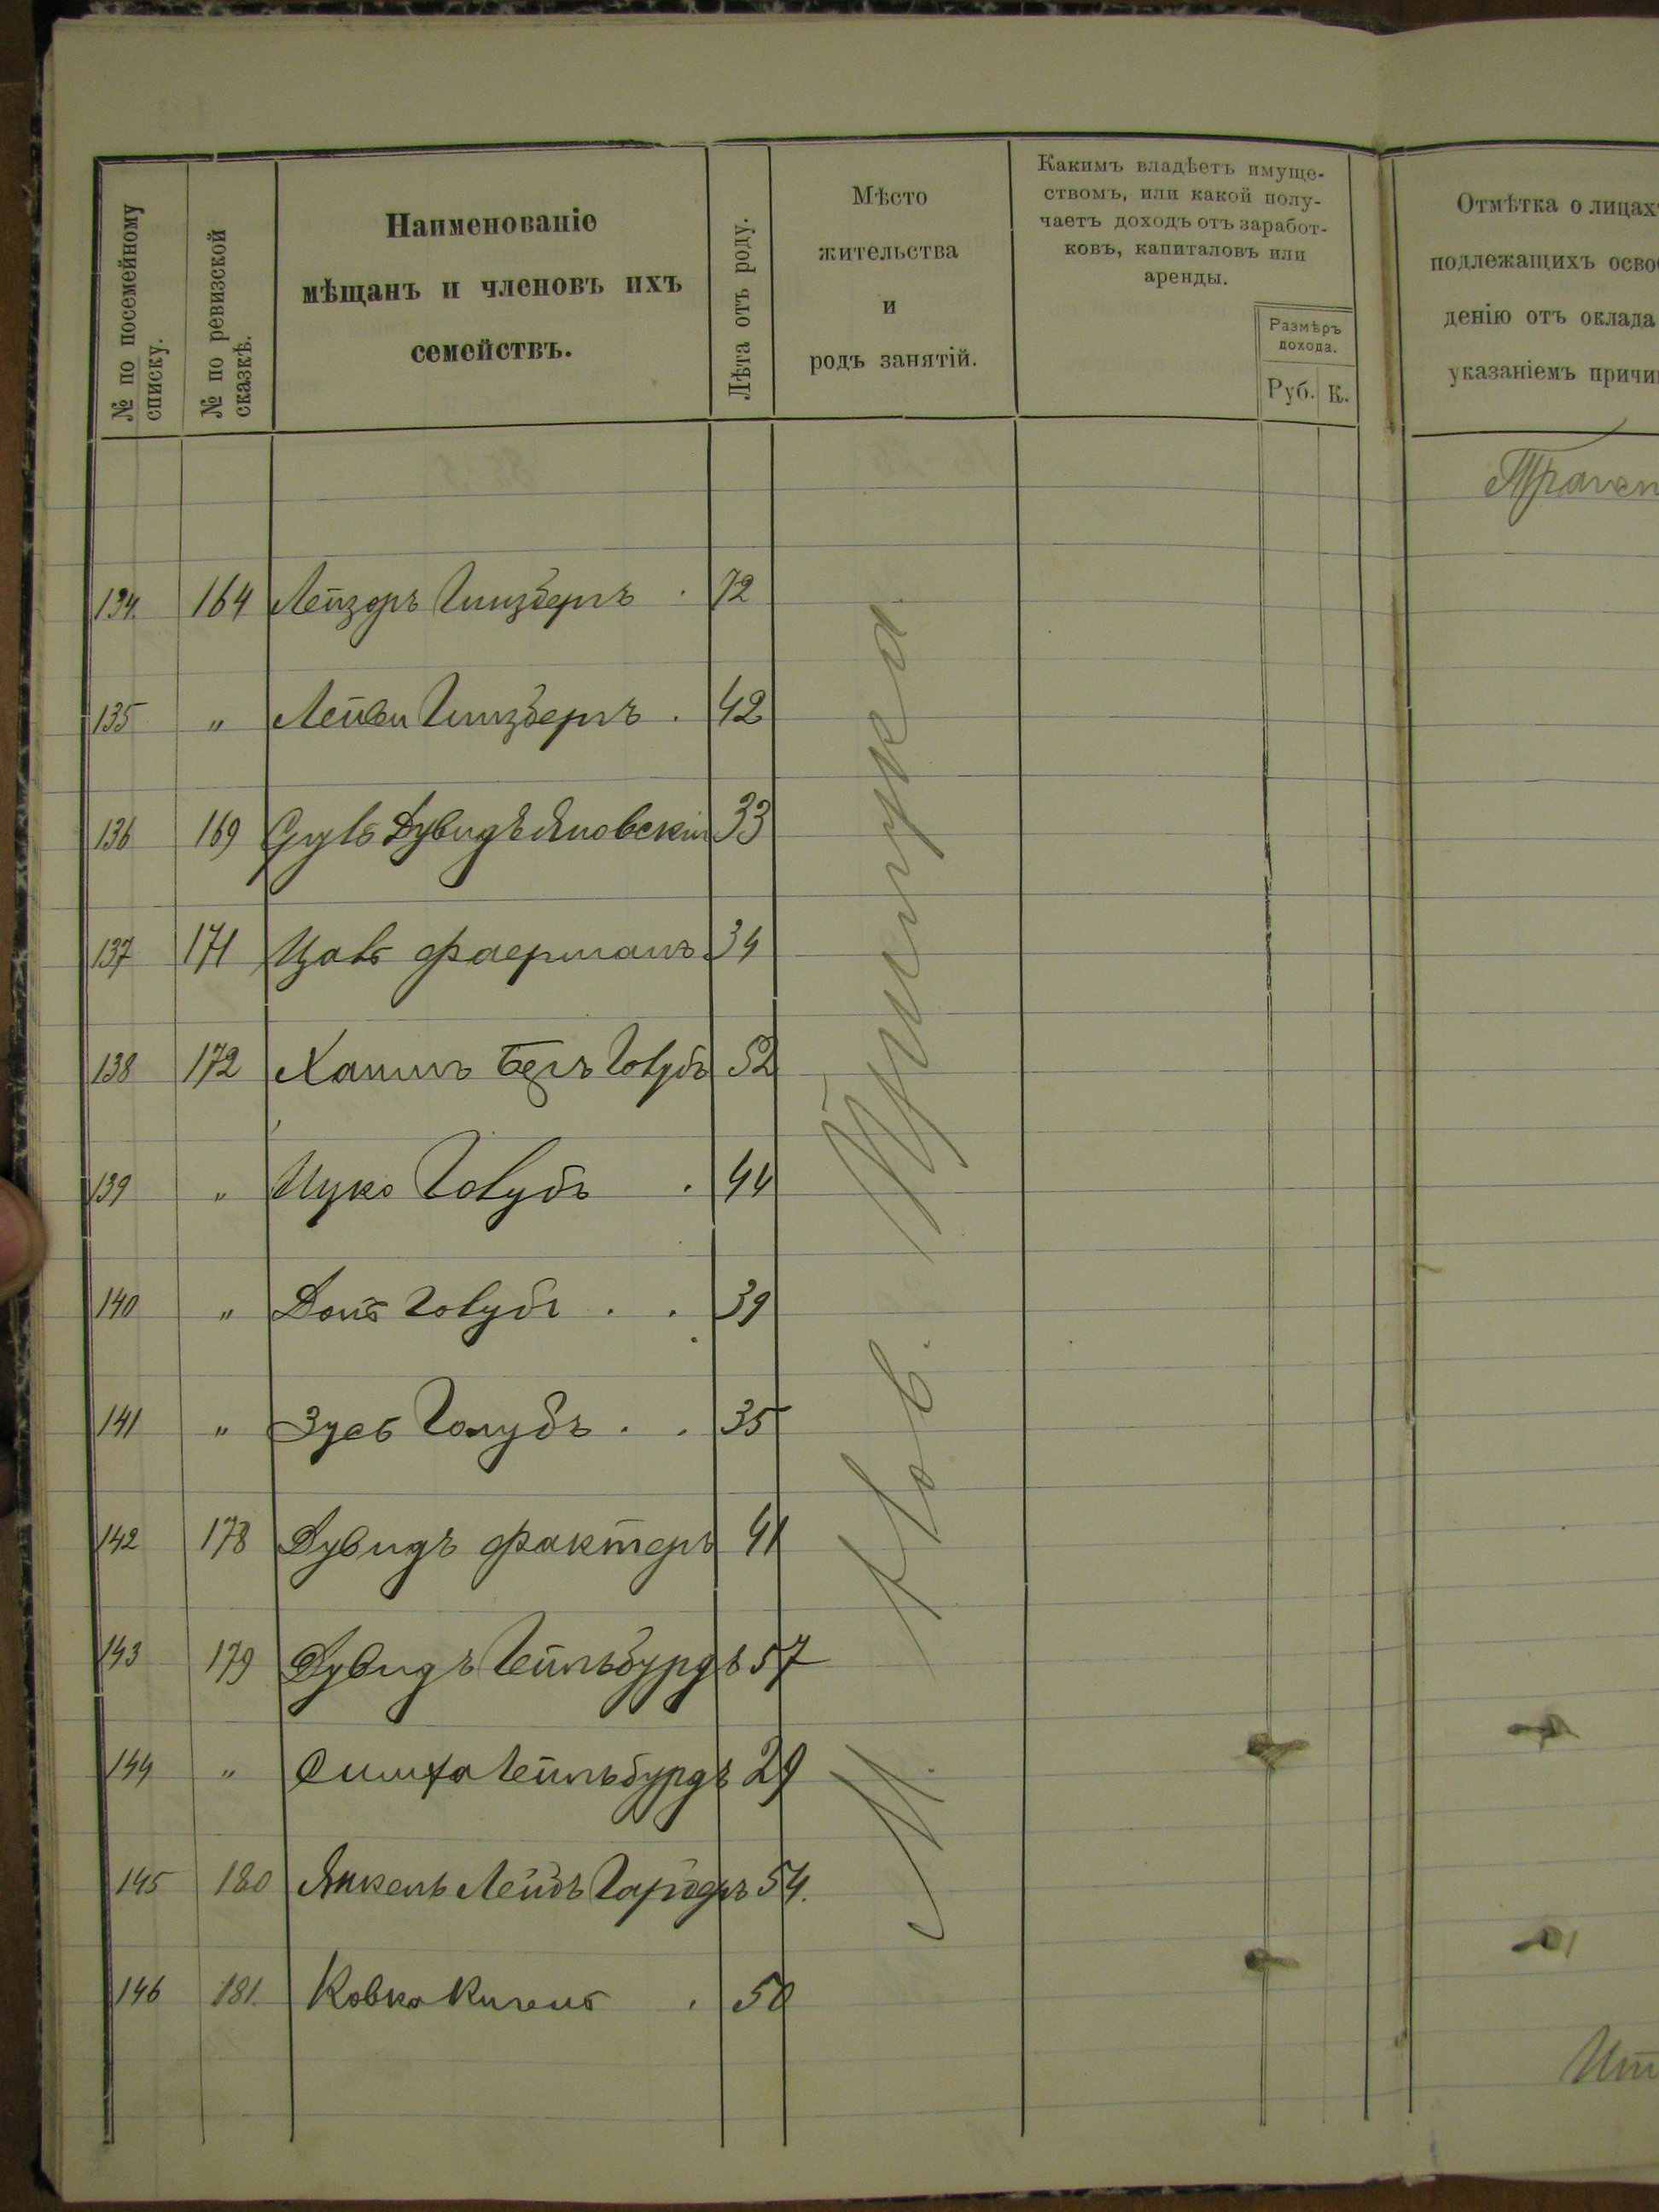 № по посемейному
списку.
№ по ревизской
сказкѣ.
Наименованіе
мѣщанъ и членовъ ихъ
семействъ.
Лѣта отъ роду.
Мѣсто
жительства
и
родъ занятій.
Какимъ владѣетъ имуще-
ствомъ, или какой полу-
чаетъ доходъ отъ заработ-
ковъ, капиталовъ или
аренды.
Размѣръ
дохода.
Руб. К.
Отмѣтка о лицахъ
подлежащихъ освоб
денію отъ оклада
указаніемъ причин
134. 164 Лейзоръ Гинзбергъ . 72
135 " Лейви Гинзбергъ . 42
136 169 Сруль Дувидъ Яновскій 33
137 171 Цаль Фаерманъ 34
138 172 Хаимъ Беръ Голубъ 52
139 " Ицко Голубъ . 44
140 " Голубъ . . 39
141 " Зусь Голубъ . . 35
142 178 Дувидъ Фактеръ 41
143 179 Дувидъ Гейльбурдъ 57
144 " Симха Гейльбурдъ 29
145 180 Янкель Лейбъ Гарберъ 54.
146 181. Ковко 50
М. Нов.